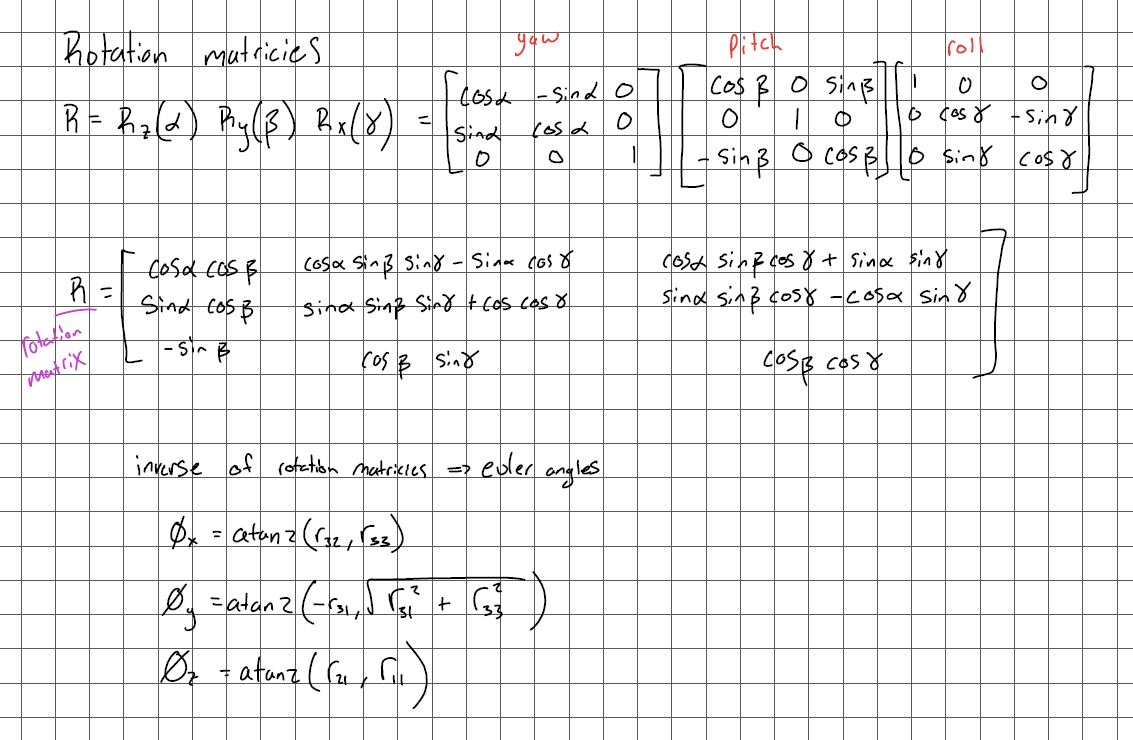 Rotation matricies
yaw pitch roll
R = Rz(α) Ry(β) Rx(γ) = [cosα -sinα 0] [cos β 0 sinβ] [1 0 0]
[sinα cos α 0] [0 1 0] [0 cos γ -sinγ]
[0 0 1] [-sin β 0 cosβ] [0 sinγ cosγ]
R = [cosα cos β cosα sinβ sinγ - sinα cos γ cosα sinβ cos γ + sinα sinγ]
[sinα cos β sinα sinβ sinγ + cos cos γ sinα sinβ cosγ - cosα sinγ]
[-sin β cos β sinγ cosβ cos γ]
rotation
matrix
inverse of rotation matricies => euler angles
Øx = atan2(r32, r33)
Øy = atan2(-r31, √r31² + r33²)
Øz = atan2(r21, r11)